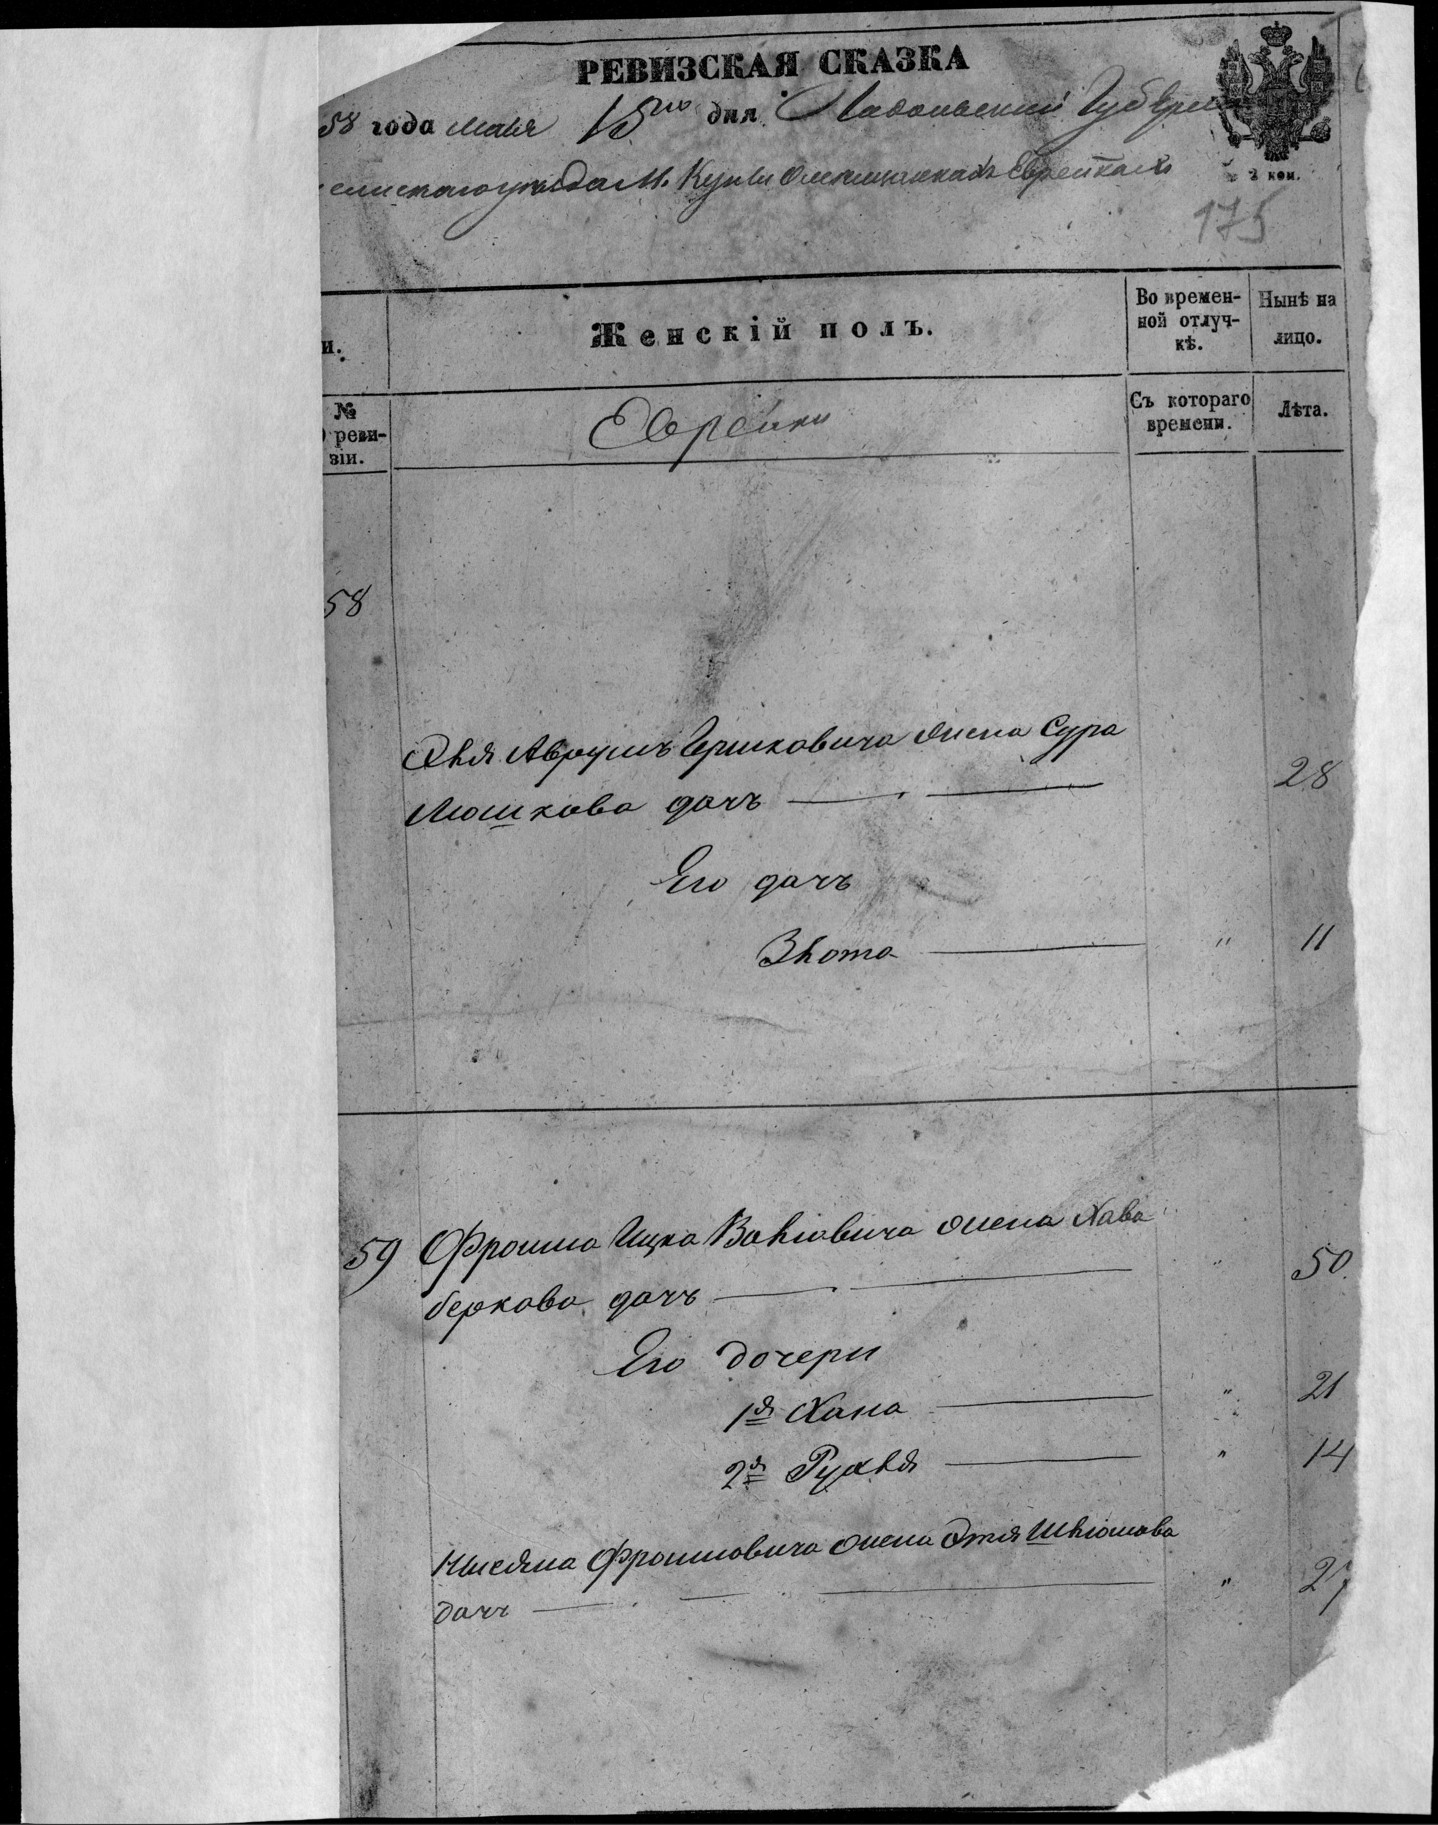 РЕВИЗСКАЯ СКАЗКА
58 года мая 15го дня Подольской Губерніи
уезда М. Купиль о мещанахъ Еврейскаго
2 коп.
175
и.
Женскій полъ.
Во времен-
ной отлуч-
кѣ.
Нынѣ на
лицо.
№
ревизіи.
Еврейки
Съ котораго
времени.
Лѣта.
58
Аврумъ Гершковича жена Сура
Мошкова дочъ 28
Его дочъ
Злота " 11
59 Фроима Ицка Волковича жена Хава
беркова дочъ " 50
Его дочери
1я Хана " 21
2я Рухля " 14
Фроимовича жена Этя Шлиомова
дочъ " 27